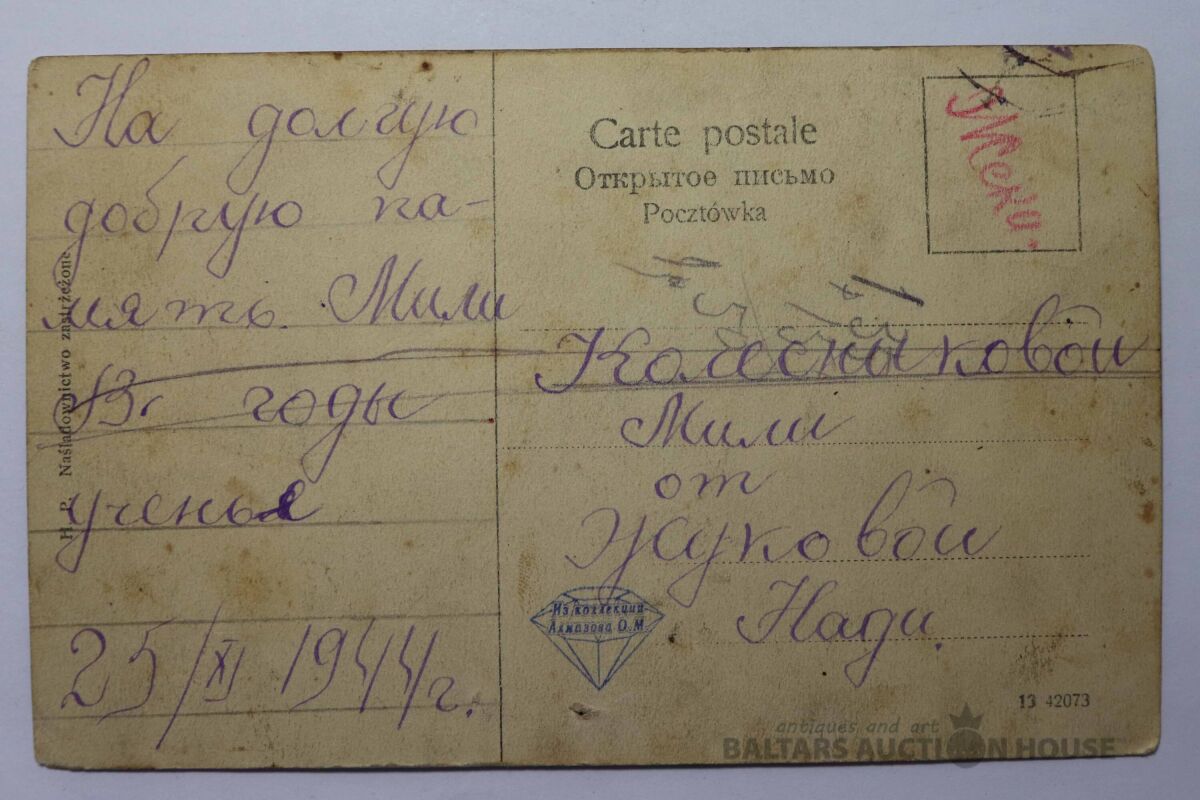 На долгую
добрую па-
мять Мили
В г годы
ученья
25/XI 1944г.
H. P. Naśladownictwo zastrzeżone
Carte postale
Открытое письмо
Pocztówka
Колесныковой
Мили
от
Жуковой
Нади.
Из коллекции
Алмазова О.М.
13 42073
antiques and art
BALTARS AUCTION HOUSE